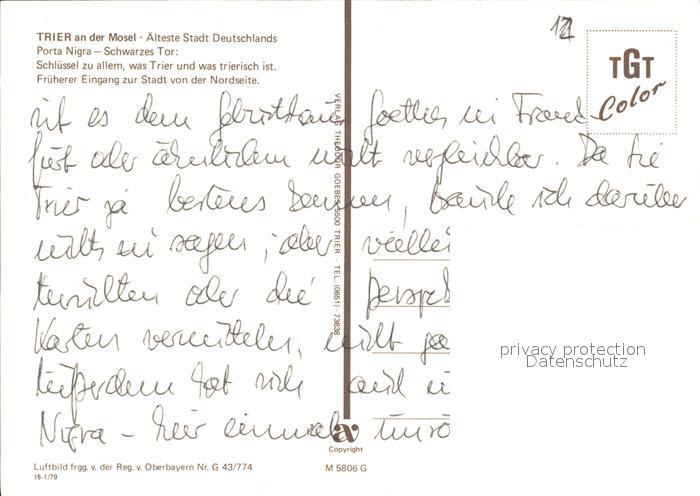 12
TRIER an der Mosel · Älteste Stadt Deutschlands
Porta Nigra – Schwarzes Tor:
Schlüssel zu allem, was Trier und was trierisch ist.
Früherer Eingang zur Stadt von der Nordseite.
TGT
Color
mit es dem Geburtshaus Goethes in Frank-
furt oder ähnlichem nicht vergleichbar. Da Sie
Trier ja bestens kennen, brauche ich darüber
nichts zu sagen; aber viellei
oder die perspek
Karten vermitteln, nicht ga
Außerdem hat sich auch
Nigra – hier einmal
VERLAG THEODOR GOEBEL 5500 TRIER · TEL. (0651) 73638
privacy protection
Datenschutz
av
Copyright
Luftbild frgg. v. der Reg. v. Oberbayern Nr. G 43/774
M 5806 G
15-1/79